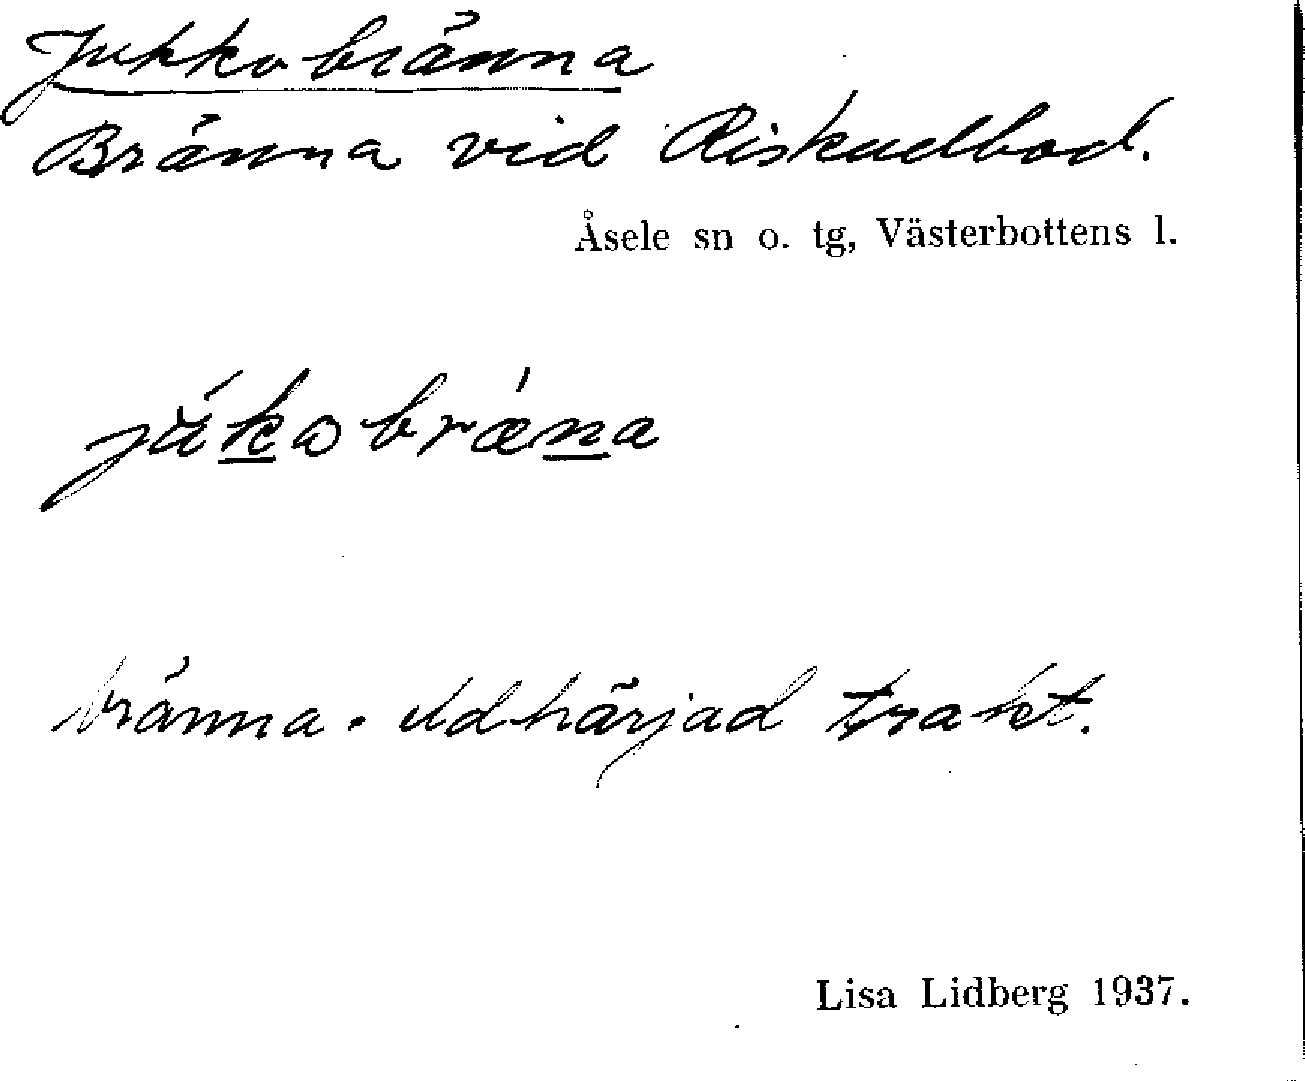 Jukkobränna
Bränna vid Riskudbod.
Åsele sn o. tg, Västerbottens l.
júkobrǽna
bränna = eldhärjad trakt.
Lisa Lidberg 1937.